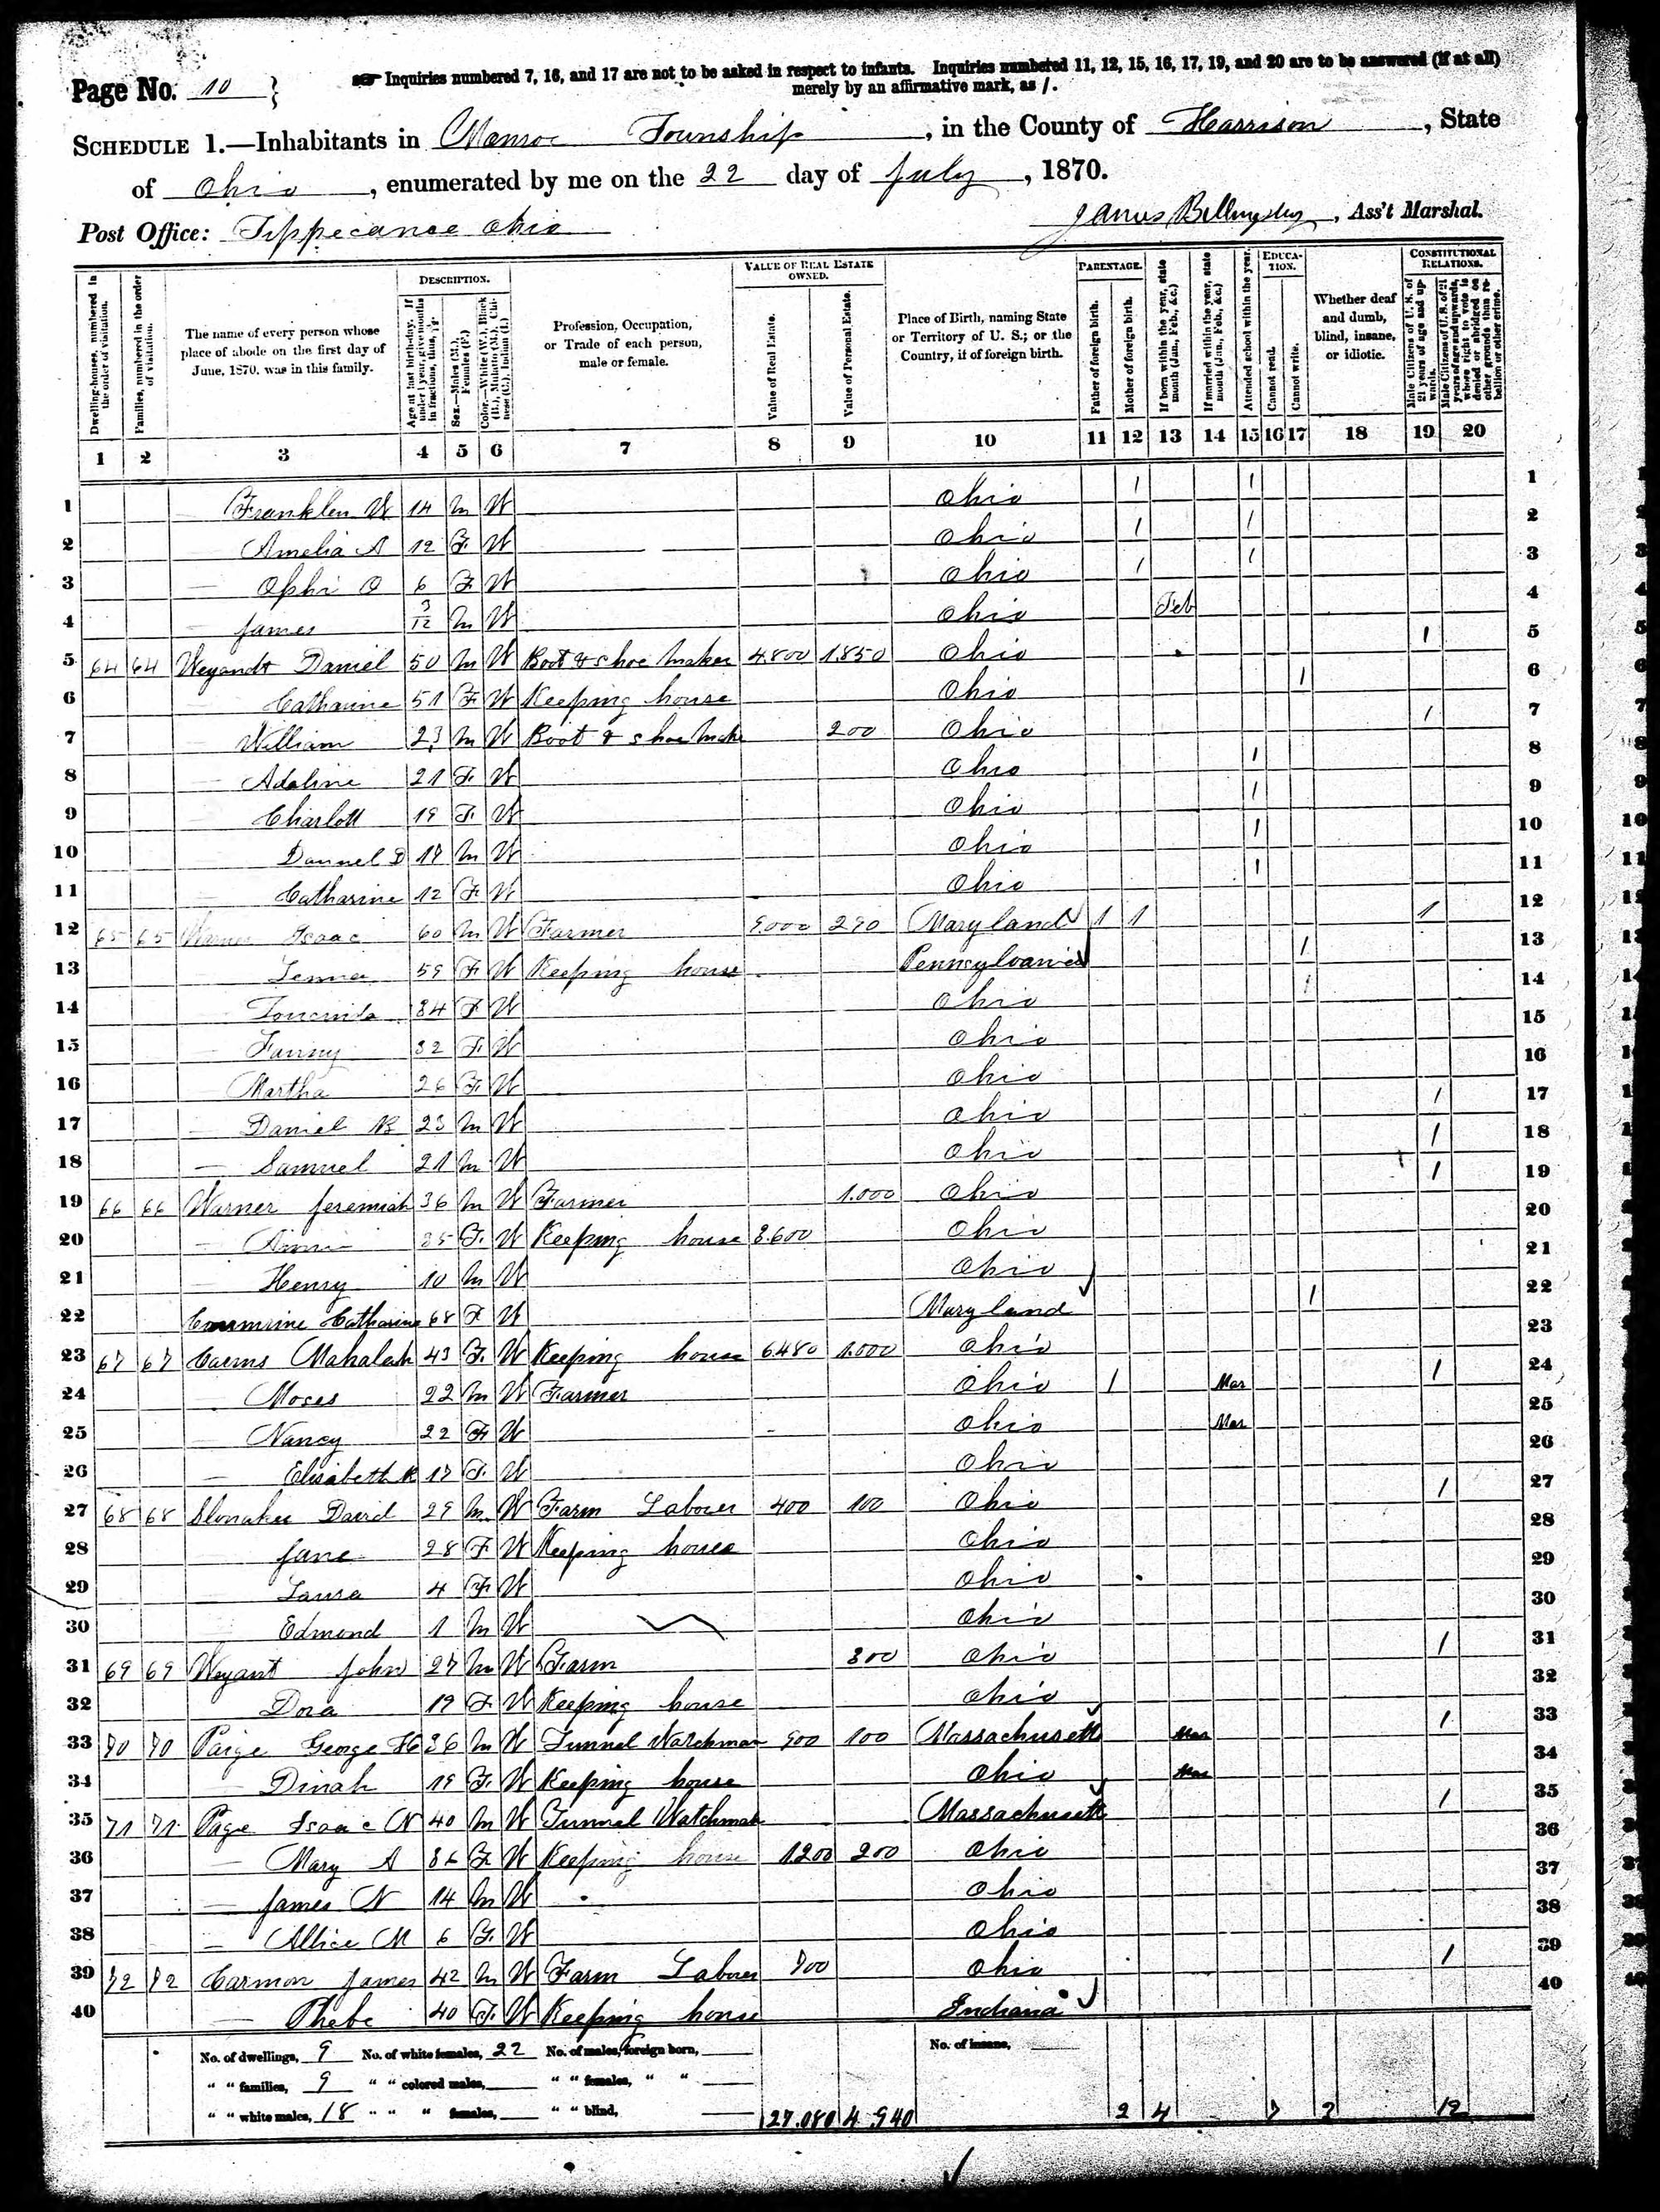 Page No. 10 }
☞ Inquiries numbered 7, 16, and 17 are not to be asked in respect to infants. Inquiries numbered 11, 12, 15, 16, 17, 19, and 20 are to be answered (if at all)
merely by an affirmative mark, as /.
SCHEDULE 1.—Inhabitants in Monroe Township, in the County of Harrison, State
of Ohio, enumerated by me on the 22 day of July, 1870.
Post Office: Tippecanoe Ohio
James Billingsley, Ass't Marshal.
Dwelling-houses, numbered in the order of visitation.
Families, numbered in the order of visitation.
The name of every person whose place of abode on the first day of June, 1870, was in this family.
DESCRIPTION.
Age at last birth-day. If under 1 year, give months in fractions, thus, 3/12.
Sex.—Males (M.), Females (F.)
Color.—White (W.), Black (B.), Mulatto (M.), Chinese (C.), Indian (I.)
Profession, Occupation, or Trade of each person, male or female.
VALUE OF REAL ESTATE OWNED.
Value of Real Estate.
Value of Personal Estate.
Place of Birth, naming State or Territory of U. S.; or the Country, if of foreign birth.
PARENTAGE.
Father of foreign birth.
Mother of foreign birth.
If born within the year, state month (Jan., Feb., &c.)
If married within the year, state month (Jan., Feb., &c.)
Attended school within the year.
EDUCATION.
Cannot read.
Cannot write.
Whether deaf and dumb, blind, insane, or idiotic.
CONSTITUTIONAL RELATIONS.
Male Citizens of U. S. of 21 years of age and upwards.
Male Citizens of U. S. of 21 years of age and upwards, whose right to vote is denied or abridged on other grounds than rebellion or other crime.
1 2 3 4 5 6 7 8 9 10 11 12 13 14 15 16 17 18 19 20
1 — Franklin W 14 M W Ohio 1 1 1
2 — Amelia A 12 F W Ohio 1 1 2
3 — O 6 F W Ohio 1 1 3
4 — James 3/12 M W Ohio Feb 4
5 64 64 Weyandt Daniel 50 M W Boot & shoe maker 4.800 1.850 Ohio 1 5
6 — Catharine 51 F W Keeping house Ohio 1 6
7 — William 23 M W Boot & shoe Make 200 Ohio 1 7
8 — Adaline 21 F W Ohio 1 8
9 — Charlott 19 F W Ohio 1 9
10 — Dannel D 17 M W Ohio 1 10
11 — Catharine 12 F W Ohio 1 11
12 65 65 Isaac 60 M W Farmer 9.000 290 Maryland 1 1 1 12
13 — 59 F W Keeping house Pennsylvania 1 13
14 — 34 F W Ohio 1 14
15 — Fanny 32 F W Ohio 15
16 — Martha 26 F W Ohio 16
17 — Daniel 23 M W Ohio 1 17
18 — Samuel 21 M W Ohio 1 18
19 66 66 Warner Jeremiah 36 M W Farmer 1.000 Ohio 1 19
20 — 35 F W Keeping house 3.600 Ohio 20
21 — Henry 10 M W Ohio 21
22 Catharine 68 F W Maryland 1 22
23 67 67 Carns Mahalah 43 F W Keeping house 6.480 1.000 Ohio 23
24 — Moses 22 M W Farmer Ohio 1 Mar 1 24
25 — Nancy 22 F W Ohio Mar 25
26 — Elisabeth R 17 F W Ohio 26
27 68 68 Slonaker David 29 M W Farm Laborer 400 100 Ohio 1 27
28 Jane 28 F W Keeping house Ohio 28
29 — Laura 4 F W Ohio 29
30 — Edmond 1 M W Ohio 30
31 69 69 Weyant John 27 M W Farm 300 Ohio 1 31
32 — Dora 19 F W Keeping house Ohio 32
33 70 70 Paige George H 36 M W Tunnel Watchman 900 100 Massachusetts Mar 1 33
34 — Dinah 19 F W Keeping house Ohio Mar 34
35 71 71 Page Isaac N 40 M W Tunnel Watchman Massachusetts 1 35
36 — Mary A 36 F W Keeping house 1200 200 Ohio 36
37 — James N 14 M W Ohio 37
38 — Allice M 6 F W Ohio 38
39 72 72 Carmon James 42 M W Farm Laborer 700 Ohio 1 39
40 — Phebe 40 F W Keeping house Indiana 40
No. of dwellings, 9 No. of white females, 22 No. of males, foreign born, No. of insane,
" " families, 9 " " colored males, " " females, " "
" " white males, 18 " " " females, " " blind, 27.080 4 940 2 4 7 2 12